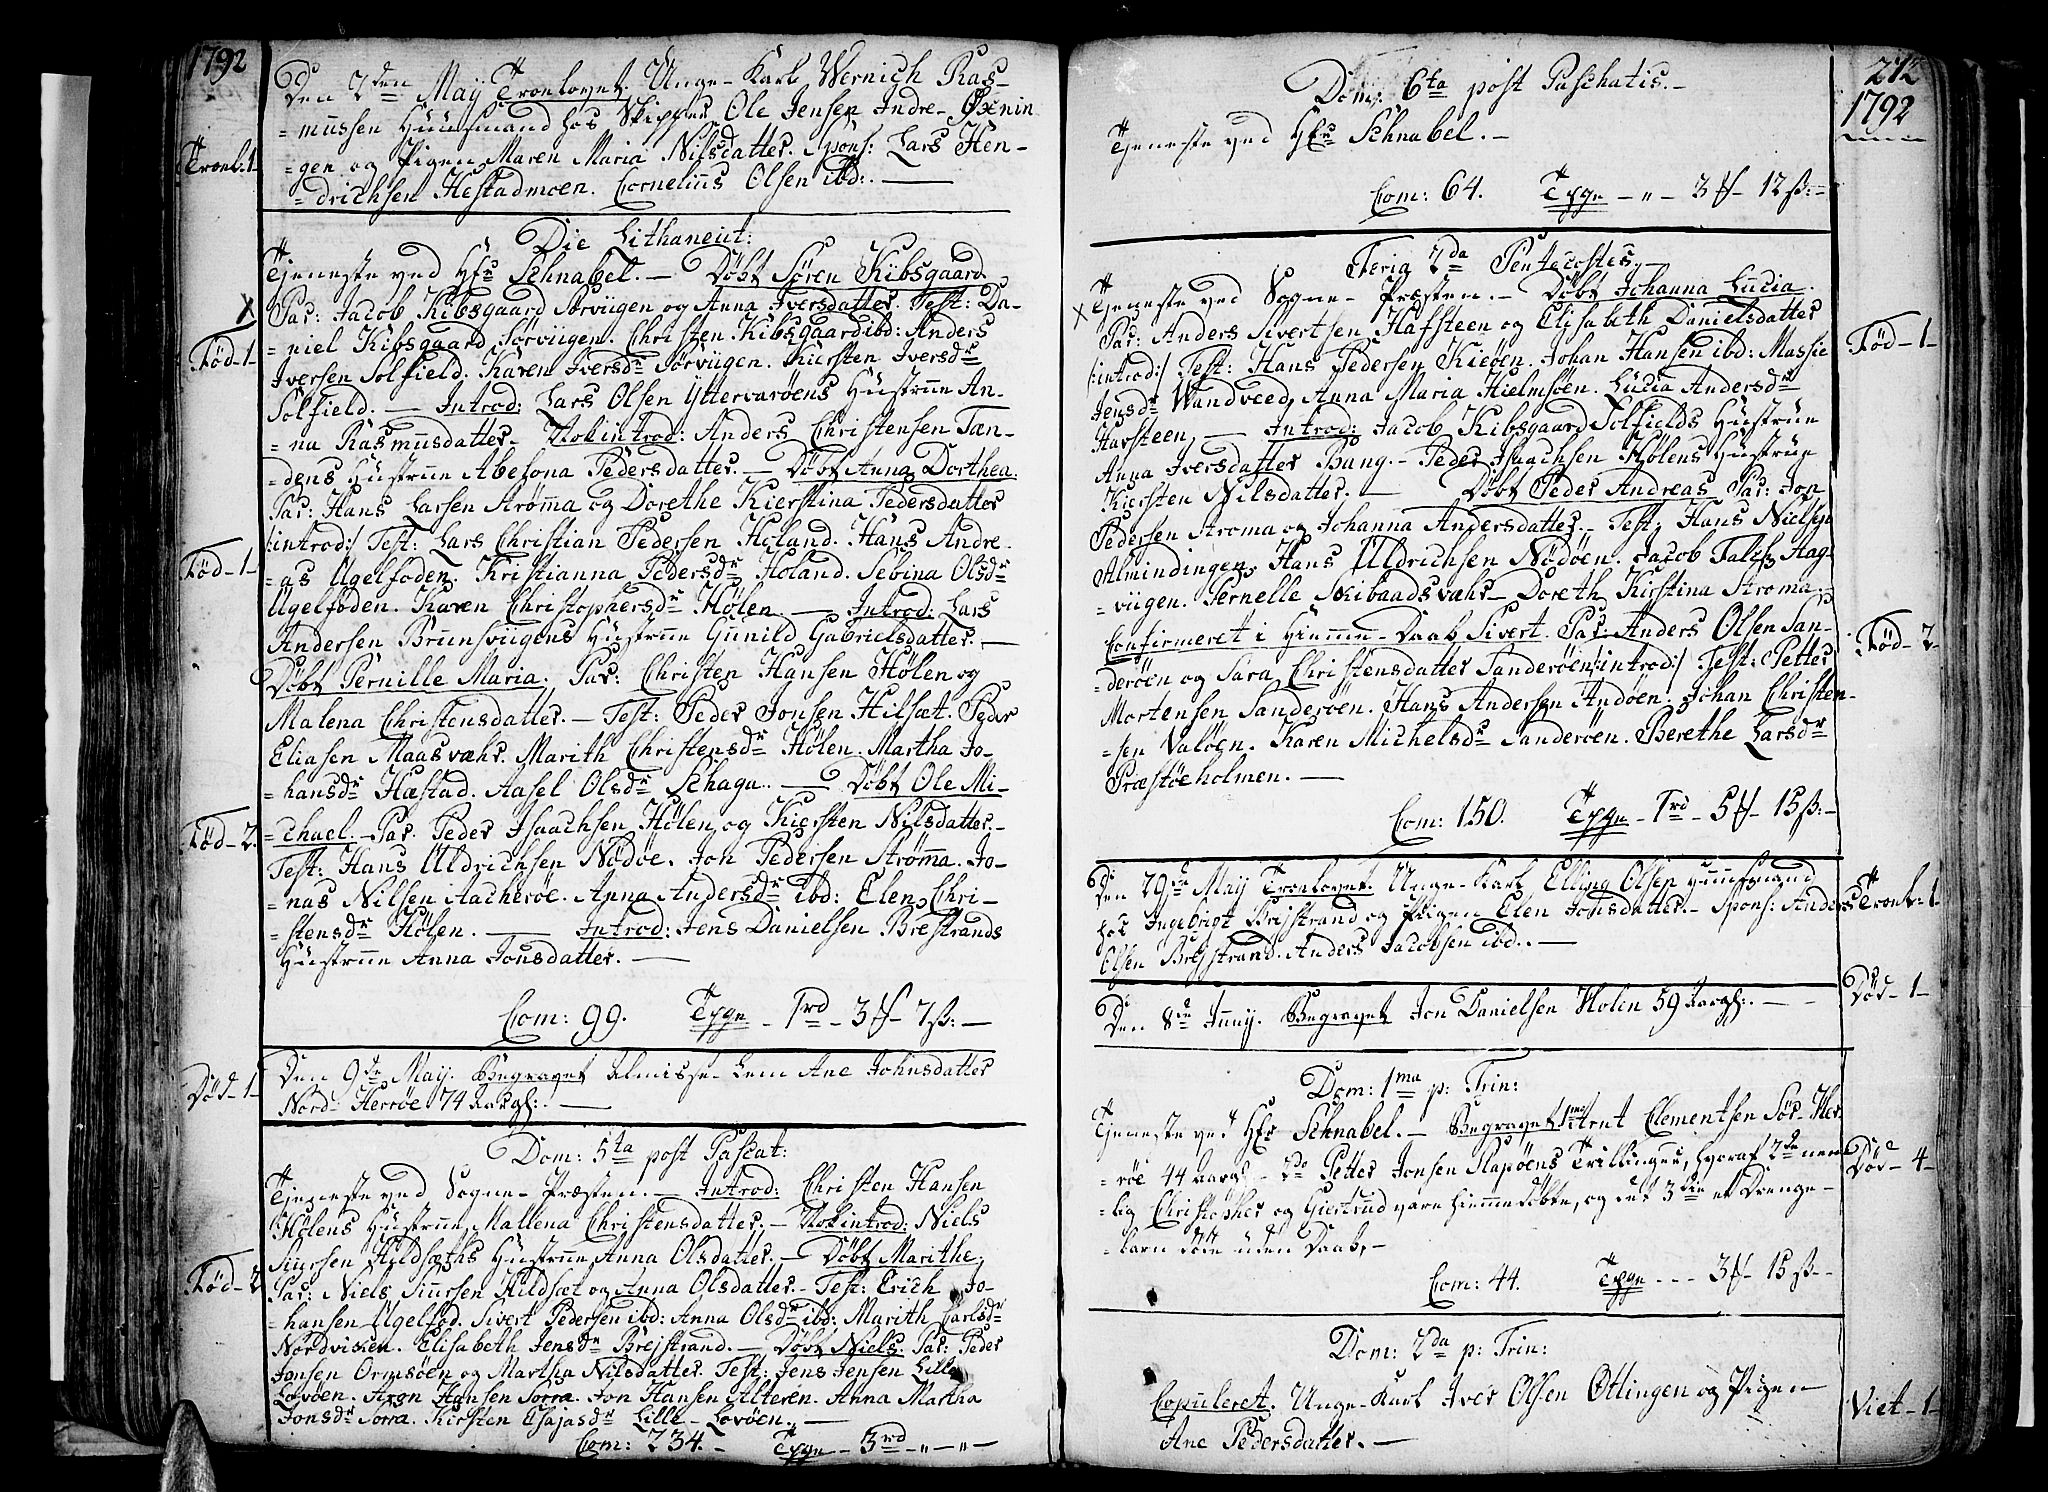 1792
Den 2den Maij Troelovet Unge-Karl Wernich Ras-
=mussen Huusmand hos Skipper Ole Jensen Indre-Øxnin
=gen og Pigen Maren Maria Nilsdatter. Spons: Lars Hen-
=drichsen Hestadmoen. Cornelius Olsen ibd:. —
Troel. 1-
Die Lithaneiit:
Tjeneste ved Hr Schnabel. — Døbt Søren Kibsgaard
Par: Jacob Kibsgaard Sørviigen og Anna Iversdatter. Test: Da-
=niel Kibsgaard Sørviigen. Christen Kibsgaard ibd: Anders
Fød-1-
Iversen Solfield. Karen Iversdr Sørviigen. Kiersten
Solfield. — Introd: Lars Olsen Yttervarøens Hustrue An-
=na Rasmusdatter. Nok introd: Anders Christensen Tan-
=dens Hustrue Abelona Pedersdatter. — Døbt Anna Dorthea.
Par: Hans Larsen Strømma og Dorethe Kierstina Pedersdatter
/:introd:/ Test: Lars Christian Pedersen Holand. Hans Andre-
Fød-1-
=as Ugelfoden. Kristianna Pedersdr Holand. Sebina Olsdr
Ugelfoden. Karen Christophersdr Hølen. — Introd: Lars
Andersen Bruunsviigens Hustrue Gunild Gabrielsdatter. —
Døbt Pernille Maria. Par: Christen Hansen Hølen og
Malena Christensdatter. — Test: Peder Jonsen Hilsæt. Peder
Eliasen Maasvahr. Marith Christensdr Hølen. Martha Jo-
=hansdr Hæstad. Aasel Olsdr Schaga. — Døbt Ole Mi-
Fød-2.
=chael. — Par. Peder Isaachsen Hølen og Kiersten Nilsdatter. —
Test: Hans Uldrichsen Nødøe. Jon Pedersen Strømma. Jo-
=nas Nilsen Aacherøe. Anna Andersdr ibd: Elen Chri-
=stensdr Hølen. — Introd: Jens Danielsen Breistrands
Hustrue Anna Jonsdatter. —
Com: 99. Tavle - 1rd - 3 - 7ß: —
Den 9de Maij. Begravet Almisse-Lem Ane Johnsdatter
Død-1-
Nord-Herrøe 74 Aar gl:. —
Dom: 5ta post Pascat:
Tjeneste ved Sogne-Præsten. — Introd: Christen Hansen
Hølens Hustrue Mallena Christensdatter. — Nok introd: Niels
Siursen Hildsæths Hustrue Anna Olsdatter. — Døbt Marithe.
Fød-2
Par: Niels Siursen Hildsæt og Anna Olsdatter. — Test: Erich Jo-
=hansen Ugelfod. Sivert Pedersen ibd: Anna Olsdr ibd: Marith Carlsdr
Nordviken. Elisabeth Jensdr Brejstrand. — Døbt Niels. Par: Peder
Jonsen Ormsøen og Martha Nilsdatter. Test: Jens Jensen Lille
Lovøen. Aron Hansen Sorra. Jon Hansen Alteren. Anna Martha
Jonsdr Sorra. Kirsten Esajasdr Lille-Lovøen. —
Com: 234. — Tavle — 3rd — " — " —
272
1792
Dom: 6ta post Paschatis. —
Tjeneste ved Hr Schnabel. —
Com: 64. Tavle — " — 3 — 12 ß: —
Feria 2da Pentecostes. —
Tjeneste ved Sogne-Præsten. — Døbt Johanna Lucia.
Par: Anders Sivertsen Hafsteen og Elisabeth Danielsdatter
Fød-1-
/:introd:/ Test: Hans Pedersen Kieøen. Johan Hansen ibd: Massie
Jensdr Wandveed, Anna Maria Hielmsøen. Lucia Andersdr
Havsteen. — Introd: Jacob Kibsgaard Solfields Hustrue
Anna Iversdatter Bang. — Peder Isaachsen Hølens Hustrue
Kiersten Nilsdatter. — Døbt Peder Andreas Par: Jon
Pedersen Stroma og Johanna Andersdatter. — Test: Hans Nielsen
Almindingen. Hans Uldrichsen Nødøen. Jacob Falch Aag-
=viigen. Pernelle Skibaadsvahr. Doreth Kirstina Stroma.
Confirmeret i Hiemme-Daab Sivert. Par: Anders Olsen San-
Fød-2-
=derøen og Sara Christensdatter Sanderøen /:introd:/ Test: Petter
Mortensen Sanderøen. Hans Andersen Andøen. Johan Christen-
=sen Valøen. Karen Michelsdr Sanderøen. Berethe Larsdr
Præstøeholmen. —
Com: 150. Tavle — 1rd — 5 — 15ß: —
Den 29de Maij Troelovet. Unge-Karl Elling Olsen Huusmand
hos Ingebrigt Brejstrand og Pigen Elen Jonsdatter. — Spons: Anders
Troel-1-
Olsen Brejstrand. Anders Jacobsen ibd:. —
Den 8de Junij. Begravet Jon Danielsen Holen 59 Aar gl:. —
Død-1-
Dom: 1ma p: Trin:
Tjeneste ved Hr Schnabel. — Begravet 1mo Arent Clementsen Sør-Her-
=røe 44 Aar gl — 2do Petter Jonsen Rapøens Trillinger, hvoraf 2de nem-
Død-4-
=lig Christopher og Giertrud vare hiemmedøbte, og det 3die et Drenge-
=barn døde uden Daab. —
Com: 44. Tavle — — 3 — 15 ß —
Dom: 2da p: Trin:
Copuleret. Unge-Karl Iver Olsen Ottingen og Pigen
Viet-1-
Ane Pedersdatter. —